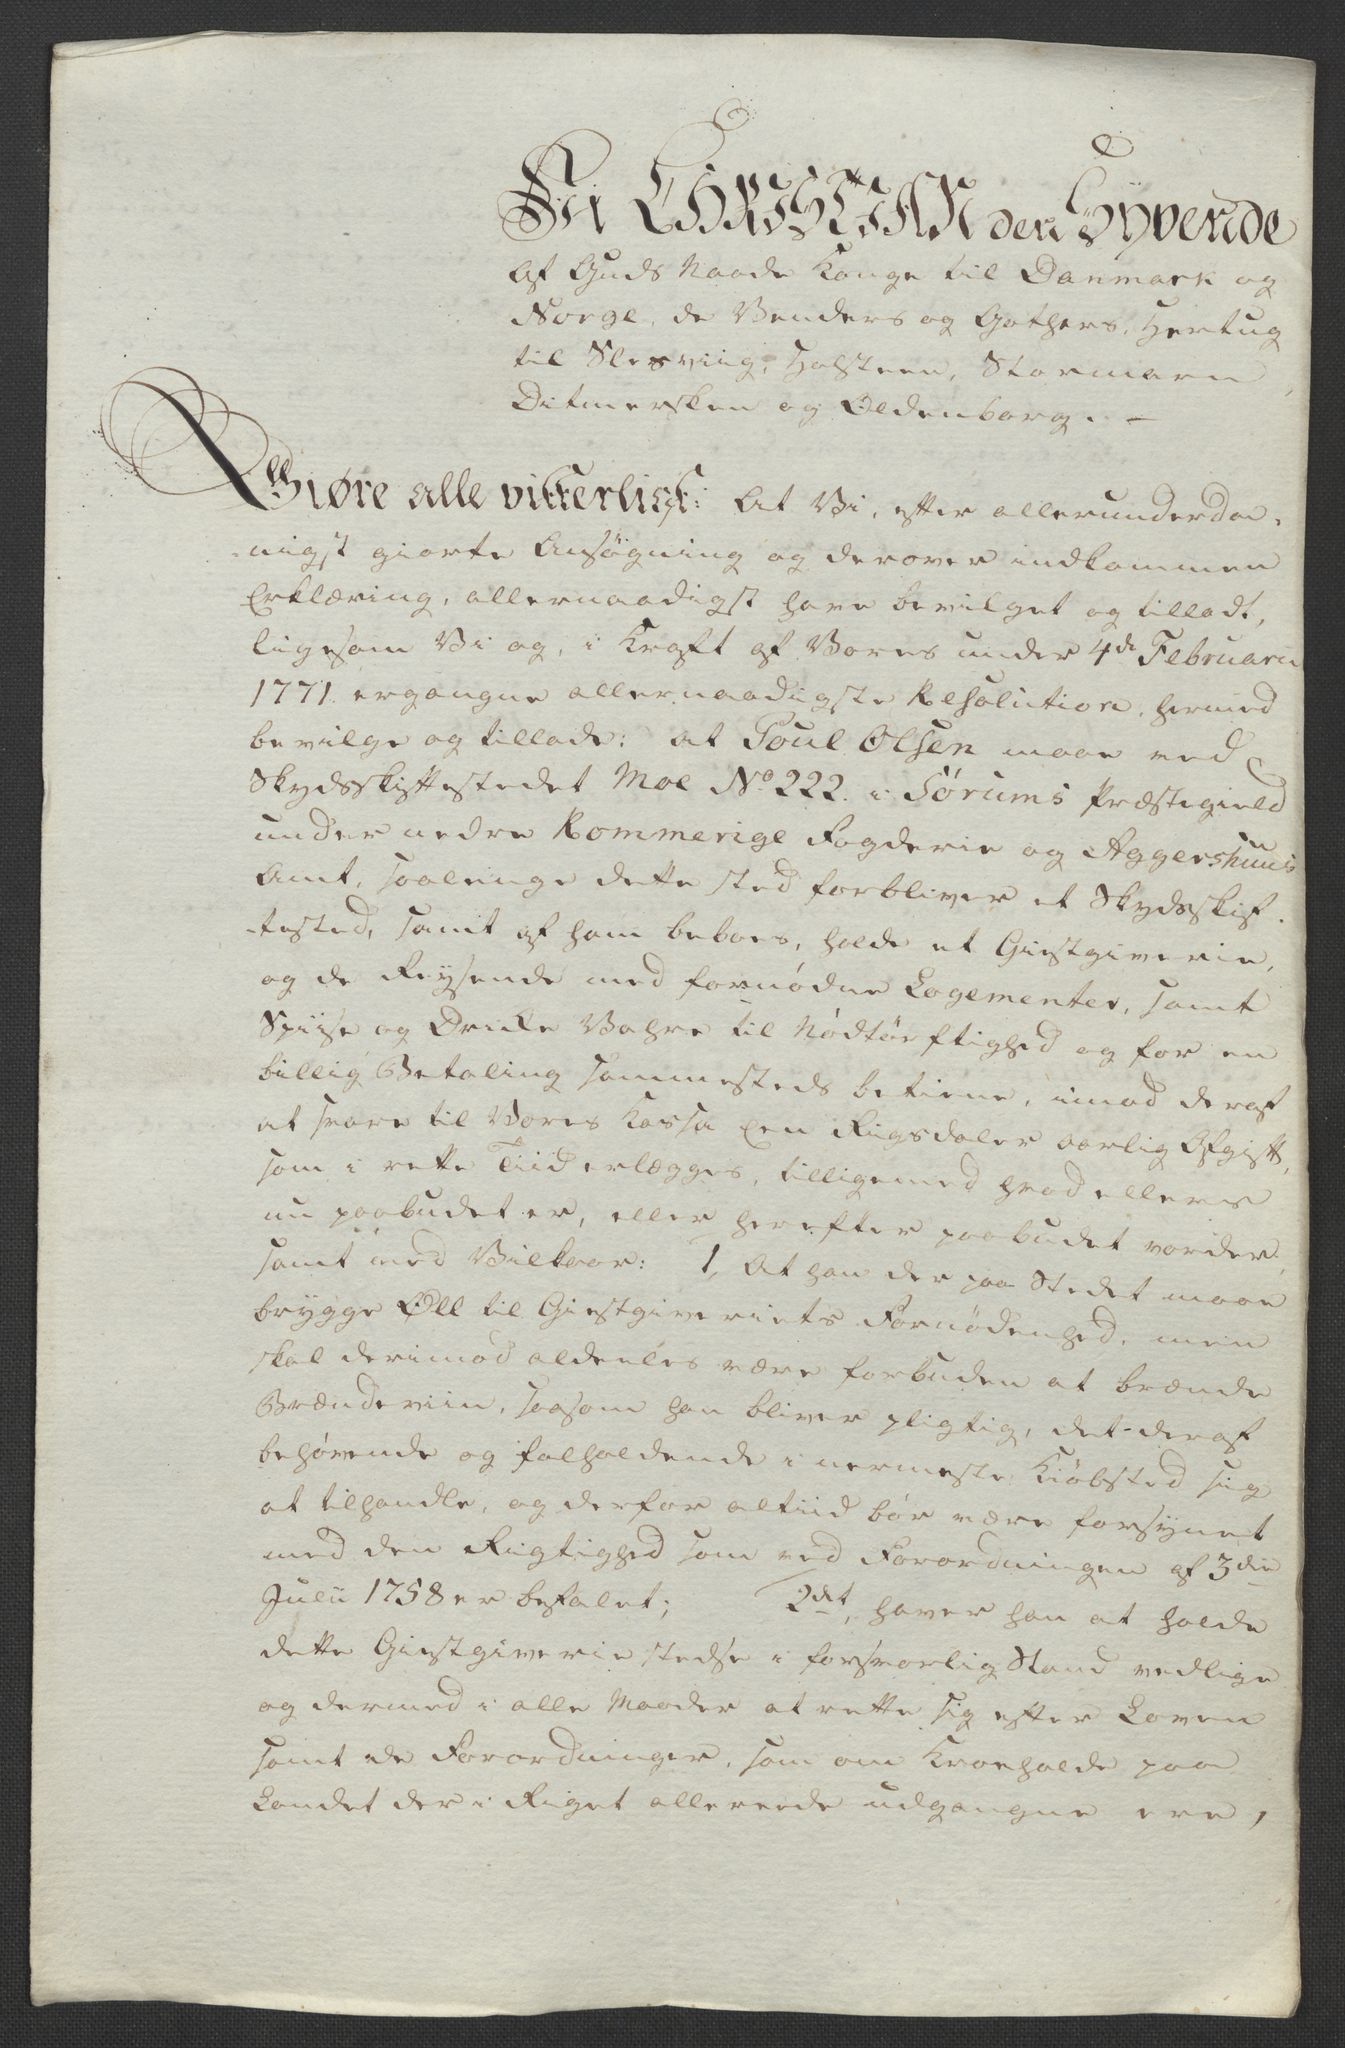 Vi CHRISTIAN den Syvende
Af Guds Naade Konge til Danmark og
Norge, de Venders og Gothers, Hertug
til Slesviig, Holsteen, Stormarn
Ditmersken og Oldenborg. —
Giøre alle vitterligt: At Vi, efter allerunderda-
-nigst giorte Ansøgning og derover indkommen
Erklæring, allernaadigst have bevilget og tilladt,
ligesom Vi og, i Kraft af Vores under 4de Februarii
1771 ergangne allernaadigste Resolution, hermed
bevilge og tillade: at Poul Olsen maae ved
Skydsskiftestedet Moe No 222. i Sørums Præstegield
under nedre Rommerige Fogderie og Aggershuus
Amt, saalenge dette sted forbliver et Skydsskif-
-tested, samt af ham beboes, holde et Giestgiverie,
og de Reysende med fornødne Logementer, samt
Spiise og Drikke Vahre til Nødtørftighed og for en
billig Betaling sammesteds betiene, imod deraf
at svare til Vores Kassa Een Rigsdaler aarlig Afgift,
som i rette Tiid erlægges, tilligemed hvad ellers
nu paabudet er, eller herefter paabudet vorder,
samt med Vilkaar: 1, At han der paa Stedet maae
brygge Øll til Giestgiveriets Fornødenhed, men
skal derimod aldeeles være forbuden at brænde
Brændeviin, saasom han bliver pligtig, det deraf
behøvende og falholdende i nermeste Kiøbsted sig
at tilhandle, og derfor altiid bør være forsynet
med den Rigtighed som ved Forordningen af 3die
Julii 1758 er befalet; 2det, haver han at holde
dette Giestgiverie stedse i forsvarlig Stand vedlige
og dermed i alle Maader at rette sig efter Loven
samt de Forordninger, som om Kroehold paa
Landet der i Riget allereede udgangne ere,